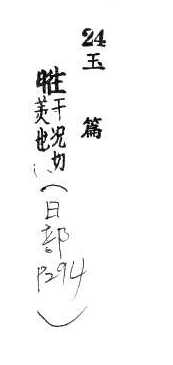 24
玉篇
暀于况切美也（日部 P294）